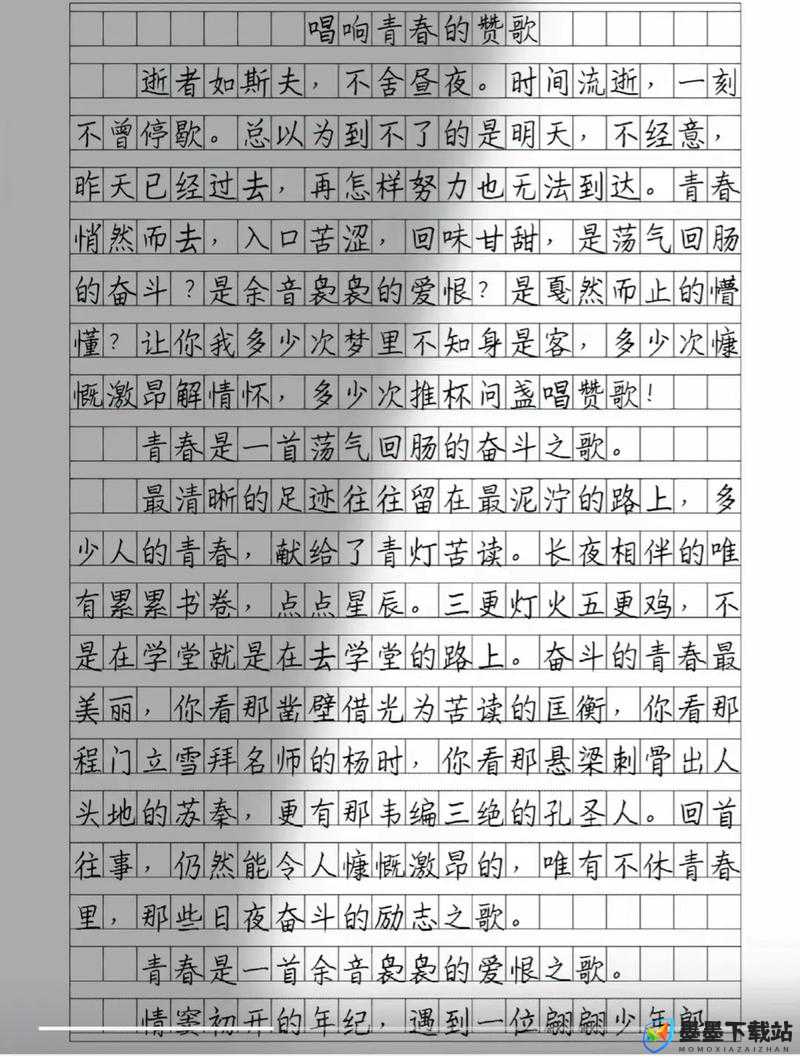 唱响青春的赞歌
逝者如斯夫，不舍昼夜。时间流逝，一刻
不曾停歇。总以为到不了的是明天，不经意，
昨天已经过去，再怎样努力也无法到达。青春
悄然而去，入口苦涩，回味甘甜，是荡气回肠
的奋斗？是余音袅袅的爱恨？是戛然而止的懵
懂？让你我多少次梦里不知身是客，多少次慷
慨激昂解情怀，多少次推杯问盏唱赞歌！
青春是一首荡气回肠的奋斗之歌。
最清晰的足迹往往留在最泥泞的路上，多
少人的青春，献给了青灯苦读。长夜相伴的唯
有累累书卷，点点星辰。三更灯火五更鸡，不
是在学堂就是在去学堂的路上。奋斗的青春最
美丽，你看那凿壁借光为苦读的匡衡，你看那
程门立雪拜名师的杨时，你看那悬梁刺骨出人
头地的苏秦，更有那韦编三绝的孔圣人。回首
往事，仍然能令人慷慨激昂的，唯有不休青春
里，那些日夜奋斗的励志之歌。
青春是一首余音袅袅的爱恨之歌。
情窦初开的年纪，遇到一位翩翩少年郎
墨墨下载站
MOMOXIAZAIZHAN